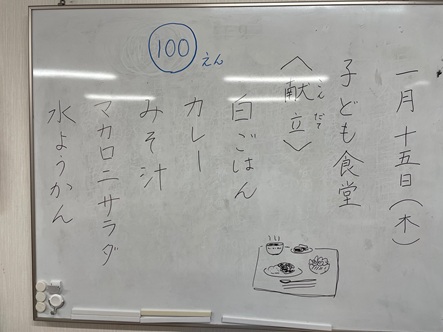 一月十五日(木)
子ども食堂
〈献立〉
こんだて
白ごはん
カレー
みそ汁
マカロニサラダ
水ようかん
100えん